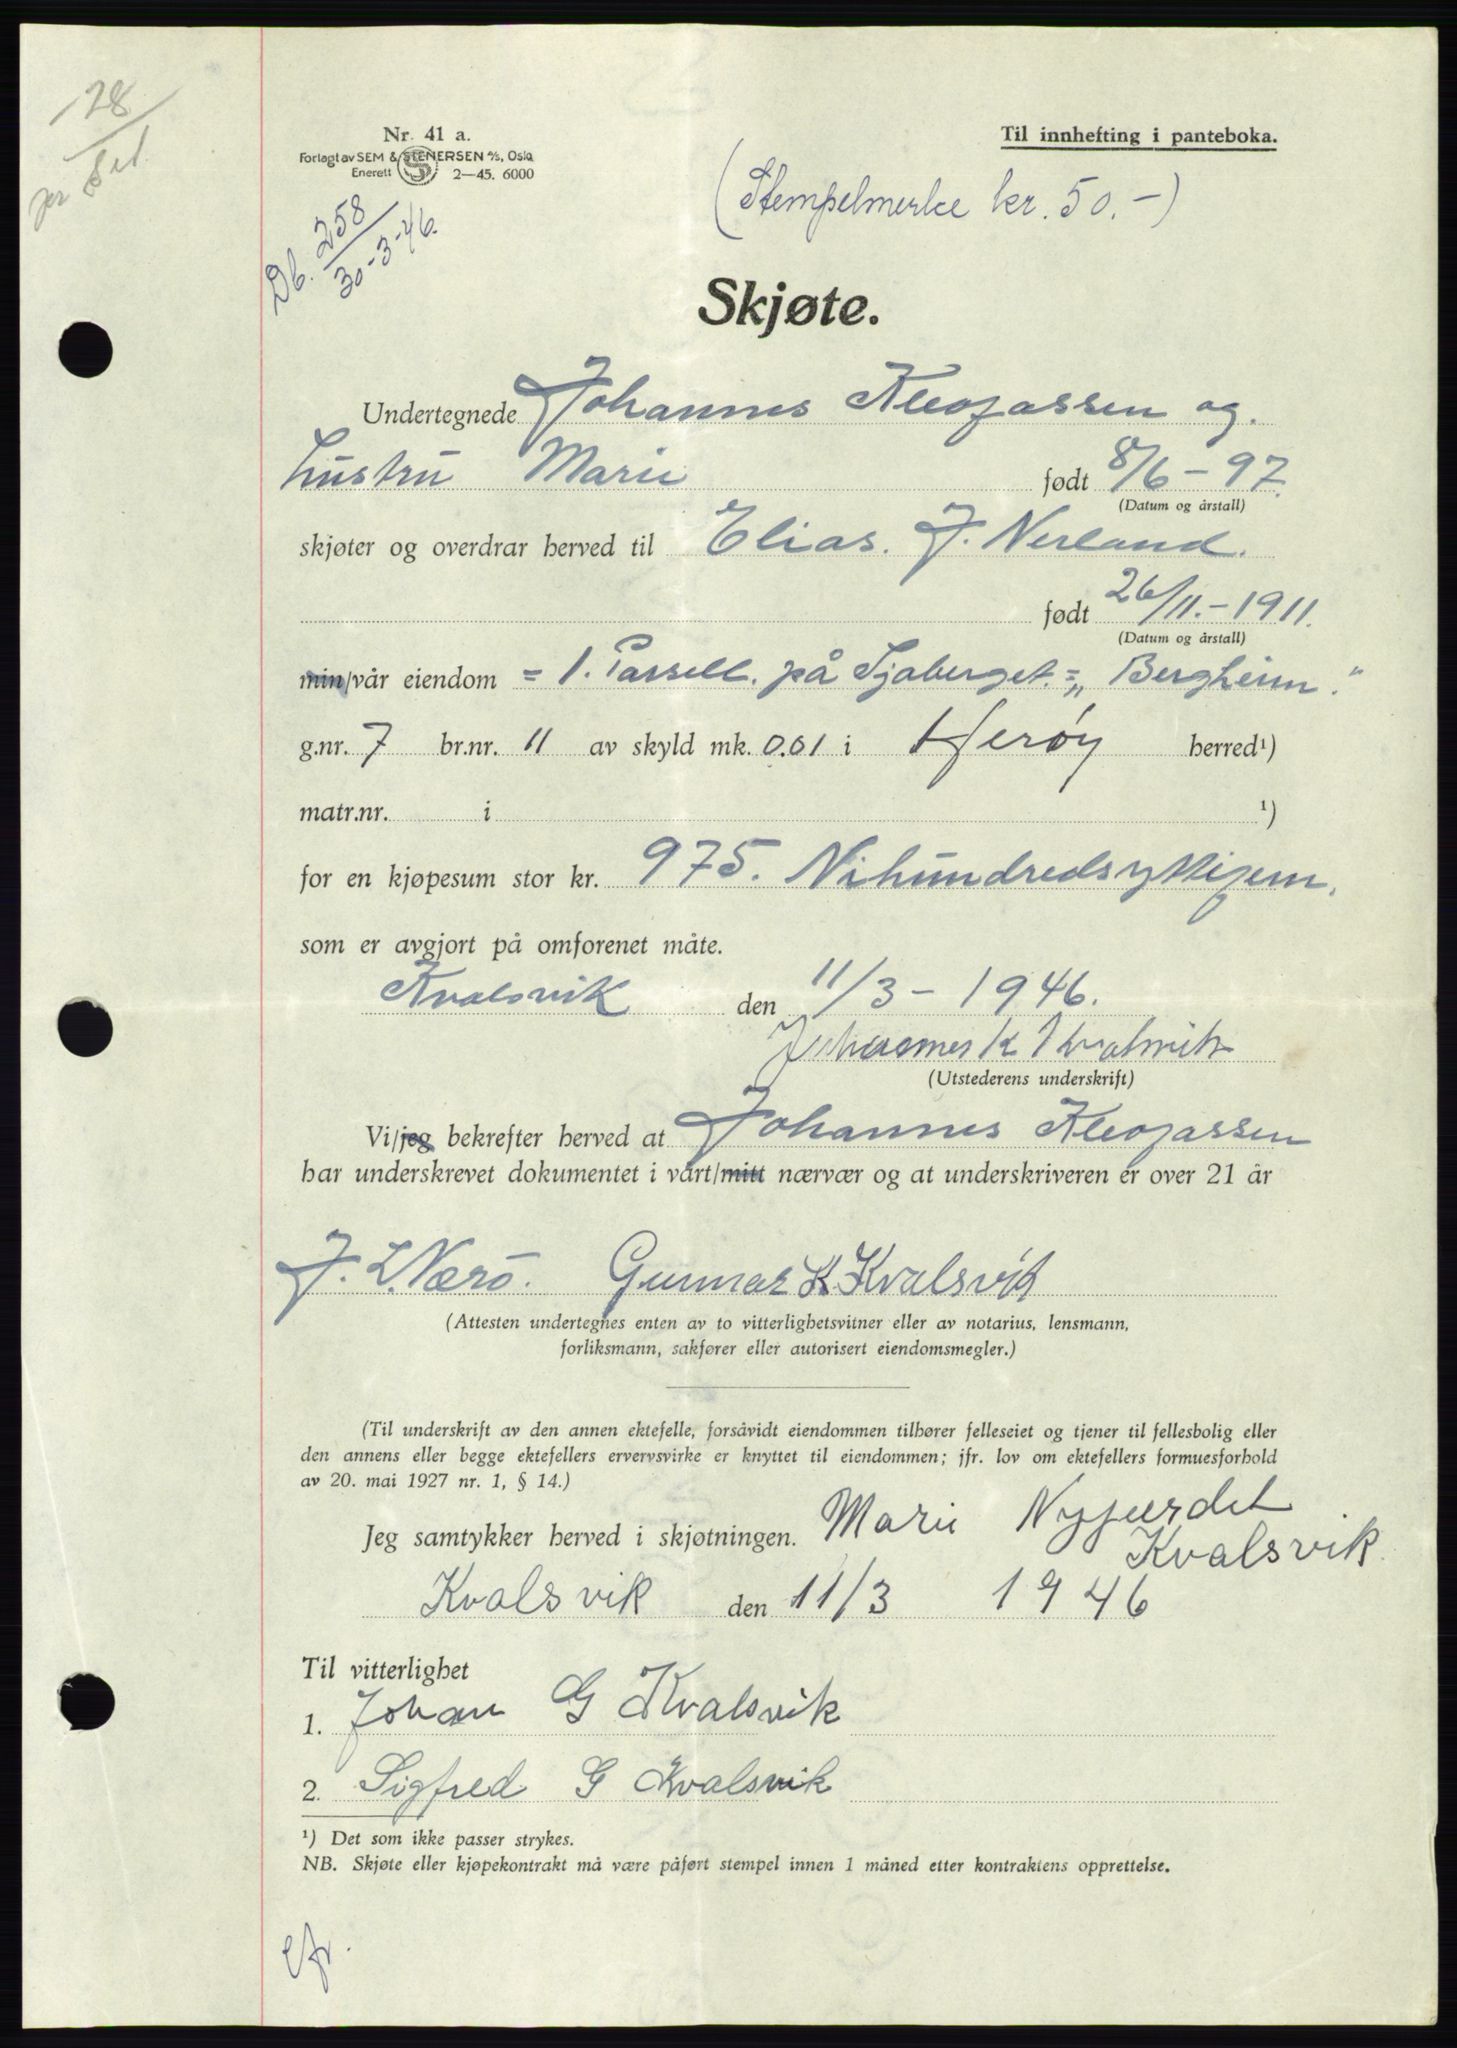 28
Nr. 41 a.
Forlagt av SEM & STENERSEN A/S, Oslo
Enerett 2—45. 6000
Til innhefting i panteboka.
(Stempelmerke kr. 50.-)
Db. 258
30-3-46.
Skjøte.
Undertegnede Johannes Kleofassen og
hustru Marie født 8/6-97.
(Datum og årstall)
skjøter og overdrar herved til Elias. J. Nerland.
født 26/11.-1911.
(Datum og årstall)
min/vår eiendom = 1. Parsell. på Sjaberget. = „Bergheim."
g.nr. 7 br.nr. 11 av skyld mk. 0.01 i Herøy herred¹)
matr.nr. i ¹)
for en kjøpesum stor kr. 975. Nihundredsyttifem.
som er avgjort på omforenet måte.
Kvalsvik den 11/3-1946.
Johannes K Kvalsvik
(Utstederens underskrift)
Vi/jeg bekrefter herved at Johannes Kleofassen
har underskrevet dokumentet i vårt/mitt nærvær og at underskriveren er over 21 år
J. L. Nærö. Gunnar K. Kvalsvik
(Attesten undertegnes enten av to vitterlighetsvitner eller av notarius, lensmann,
forliksmann, sakfører eller autorisert eiendomsmegler.)
(Til underskrift av den annen ektefelle, forsåvidt eiendommen tilhører felleseiet og tjener til fellesbolig eller
den annens eller begge ektefellers ervervsvirke er knyttet til eiendommen; jfr. lov om ektefellers formuesforhold
av 20. mai 1927 nr. 1, § 14.)
Jeg samtykker herved i skjøtningen. Marie Nygjerdet
Kvalsvik
Kvalsvik den 11/3 1946
Til vitterlighet
1. Johan G Kvalsvik
2. Sigfred G Kvalsvik
¹) Det som ikke passer strykes.
NB. Skjøte eller kjøpekontrakt må være påført stempel innen 1 måned etter kontraktens opprettelse.